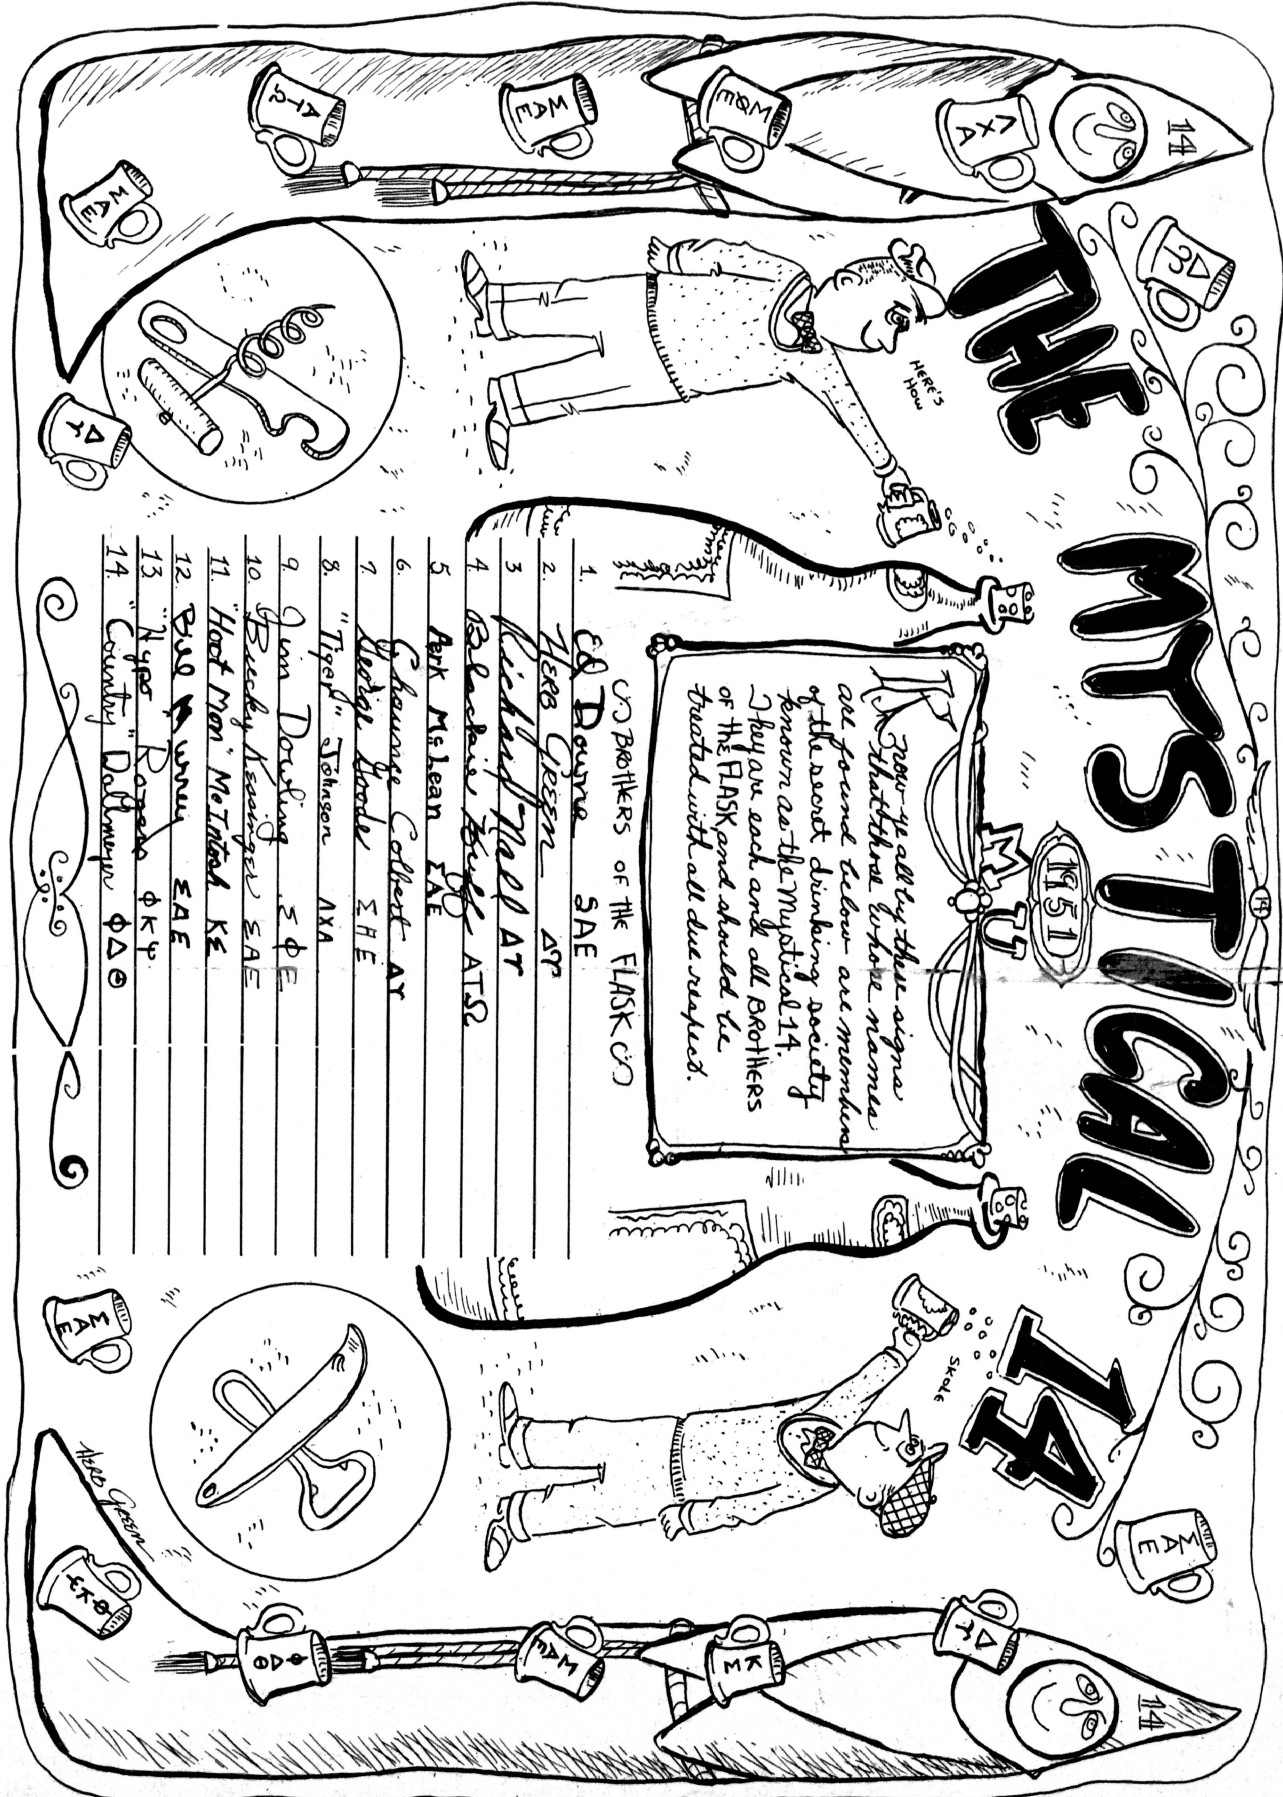 THE MYSTICAL 14
14
14
14
1951
MU
HERE'S
HOW
SKOLE
Know ye all by these signs
that those whose names
are found below are members
of the secret drinking society
known as the Mystical 14.
They are each and all BROTHERS
OF THE FLASK and should be
treated with all due respect.
BROTHERS OF THE FLASK
1. Ed Downs SAE
2. HERB GREEN ΔΥ
3 Richard Nall ΔΥ
4 ATΩ
5 McLean ΣAE
6. Chaunce Colbert ΔΥ
7. George Goode ΣAE
8. "Tiger" Johnson ΛXA
9. Jim Dowling ΣΦE
10. Bucky Kessinger ΣAE
11. "Hoot Mon" McIntosh KΣ
12. Bill ΣAE
13 "Hypo" Rogers ΦKΨ
14. "Country" Dallmeyer ΦΔΘ
ΛXA
ΣΦE
ΣAE
ATΩ
ΣAE
ΔΥ
ΔΥ
ΣAE
ΣAE
ΔΥ
KΣ
ΣAE
ΦΔΘ
ΦKΨ
HERB GREEN